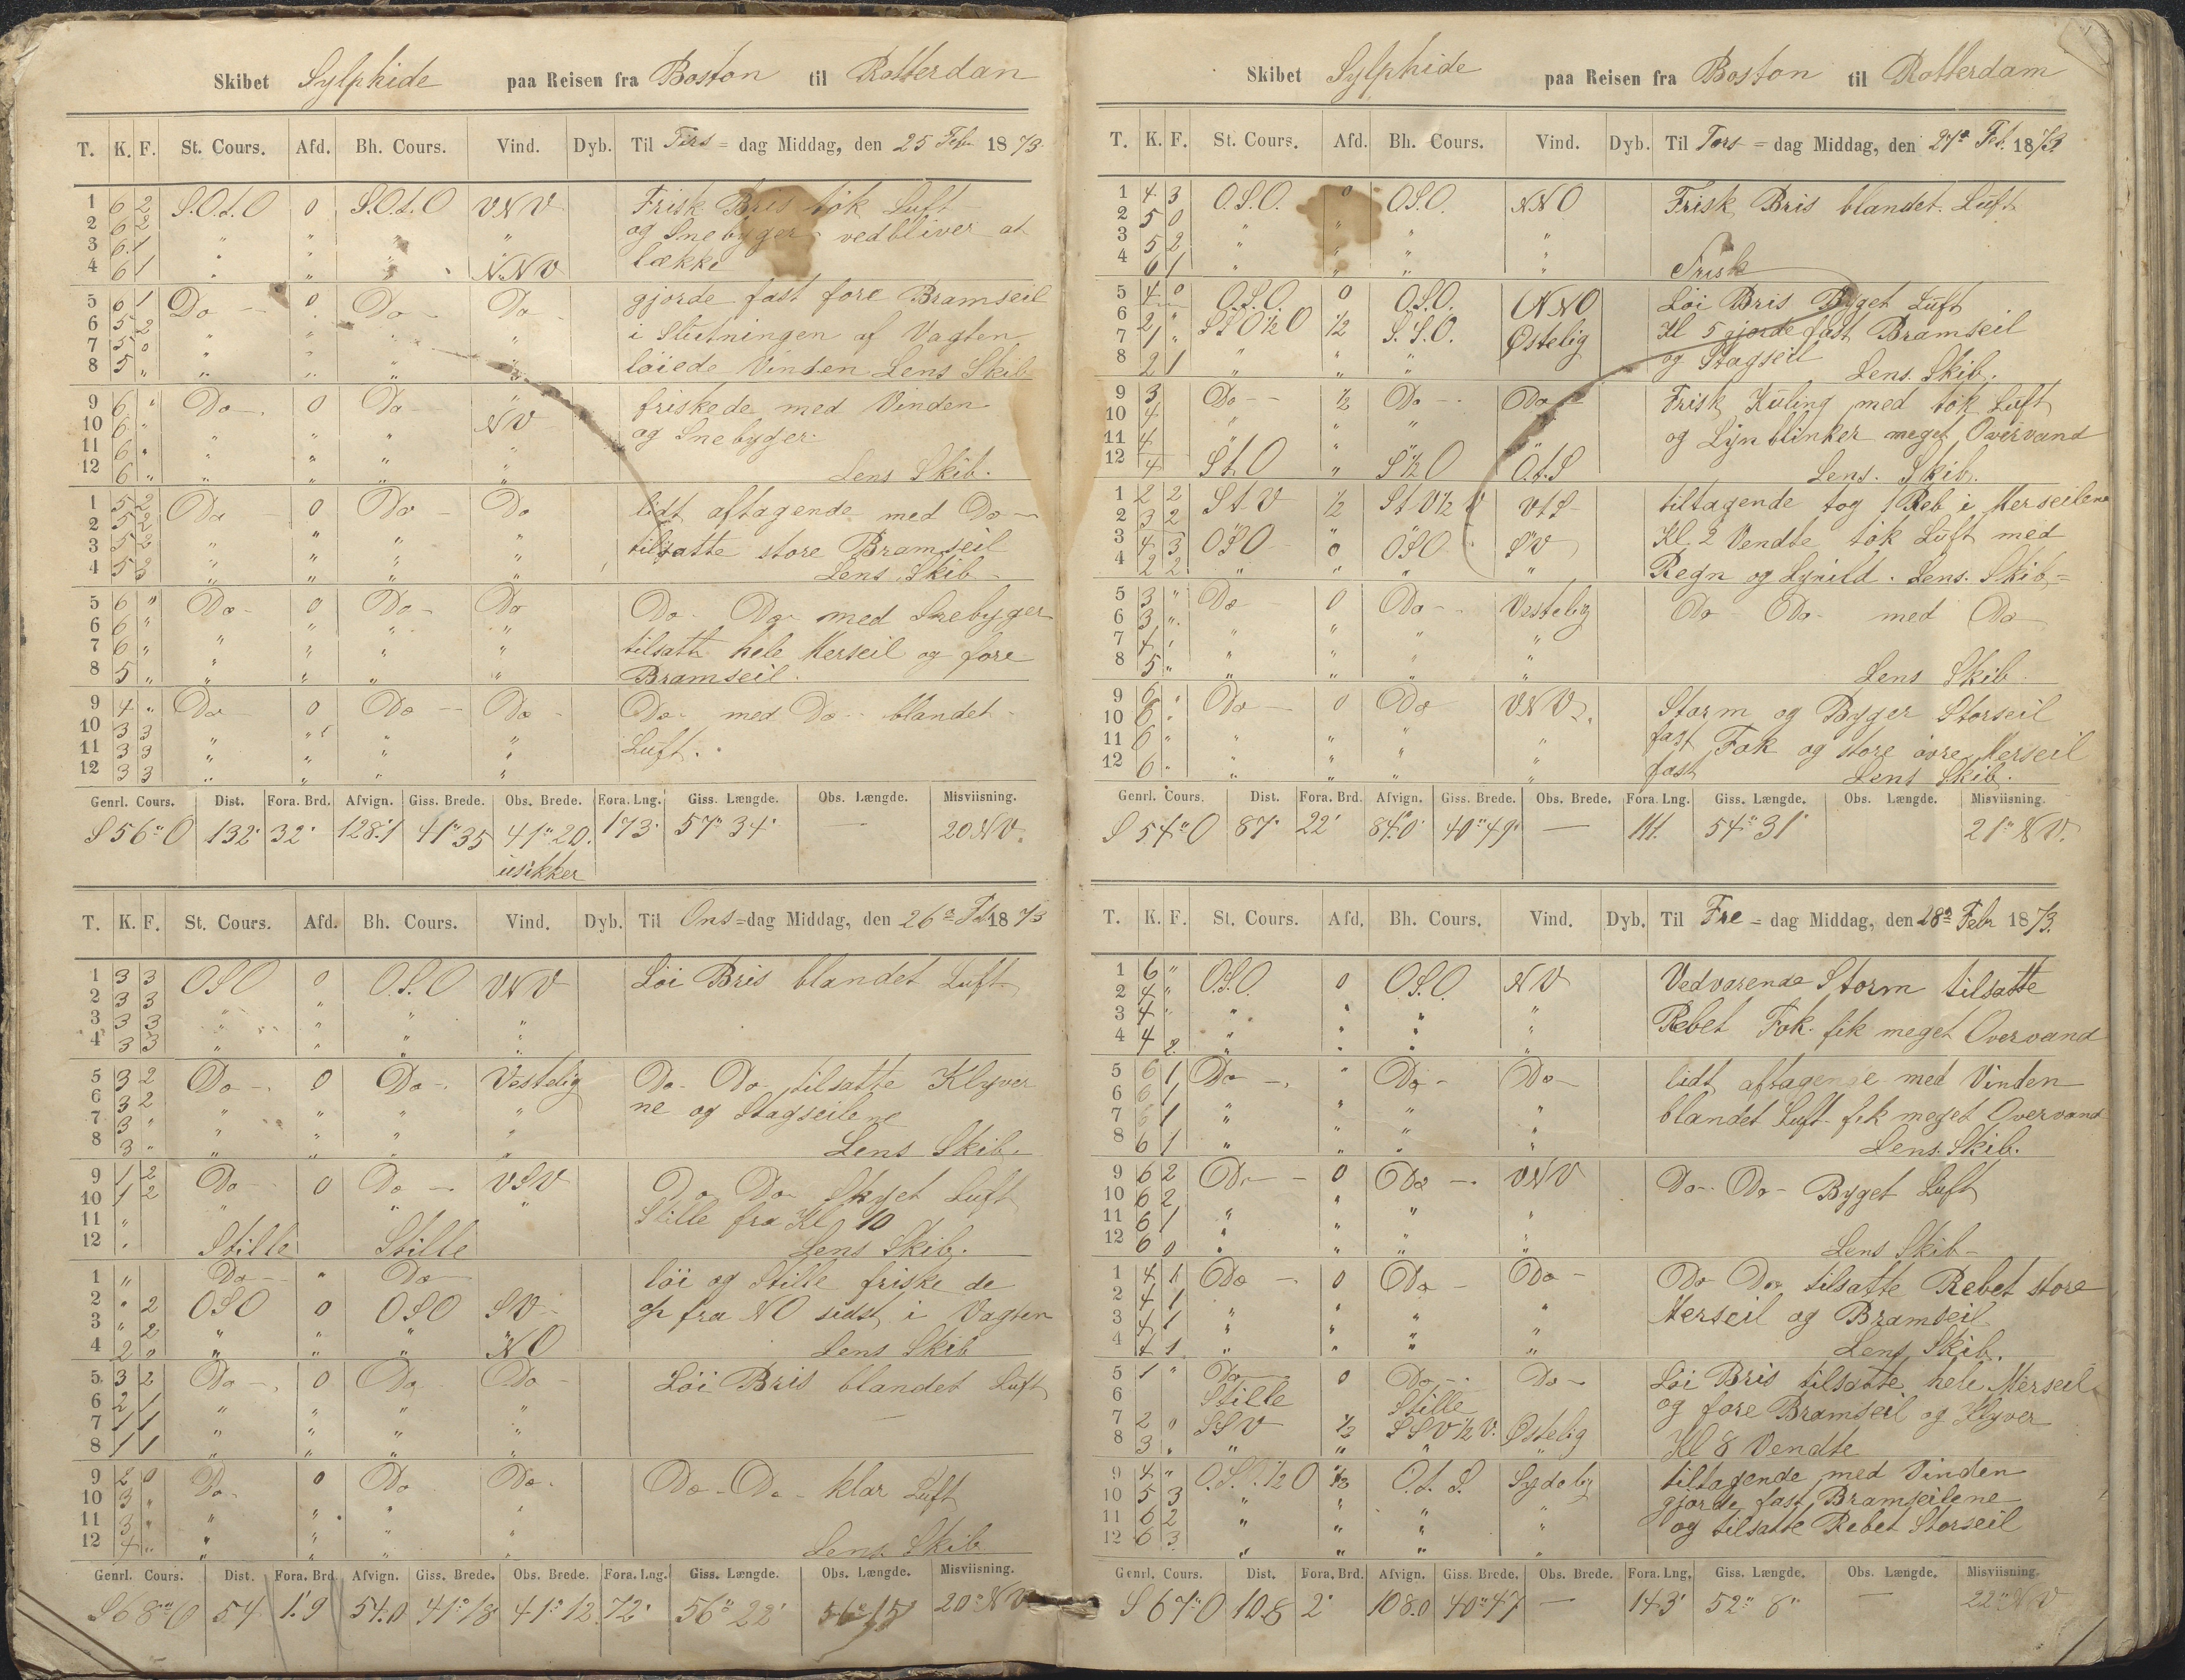 Skibet Sylphide paa Reisen fra Boston til Rotterdan
T. K. F. St. Cours. Afd. Bh. Cours. Vind. Dyb. Til Tirs = dag Middag, den 25 Feb. 1873
1 6 2 S.O.t.O 0 S.O.t.O VNV Frisk Bris tök Luft
2 6 2 og Snebyger vedbliver at
3 6 1 " " " "
4 6 1 " " " N.NV lække
5 6 1 Do 0 Do Do gjorde fast fore Bramseil
6 5 2 " " " " i Slutningen af Vagten
7 5 0 " " " "
8 5 " " " " " löiede Vinden Lens Skib
9 6 " Do 0 Do " friskede med Vinden
10 6 " NV og Snebyger
11 6 " " " " "
12 6 " " " " " Lens Skib.
1 5 2 Do 0 Do Do lidt aftagende med Do
2 5 2 " "
3 5 2 " " " " tilsatte store Bramseil
4 5 3 " " " " Lens Skib
5 6 " Do 0 Do Do Do Do med Snebyger
6 6 " " " " "
7 6 " " " " " tilsatte hele Merseil og fore
8 5 " " " " " Bramseil.
9 4 " Do 0 Do Do Do med Do blandet
10 3 3 " " "
11 3 3 " " " " Luft.
12 3 3 " " " "
Genrl. Cours. Dist. Fora. Brd. Afvign. Giss. Brede. Obs. Brede. Fora. Lng. Giss. Længde. Obs. Længde. Misviisning.
S 56° O 132' 32' 128.1 41° 35 41° 20. 173' 57° 34' — 20 NV.
usikker
T. K. F. St. Cours. Afd. Bh. Cours. Vind. Dyb. Til Ons = dag Middag, den 26de Feb 1873
1 3 3 OSO 0 O.S.O VNV Löi Bris blandet Luft
2 3 3 "
3 3 3 " " " "
4 3 3 " " " "
5 3 2 Do 0 Do Vestelig Do Do tilsatte Klyver
6 3 2 ne og Stagseilene
7 3 " " " " "
8 3 " " " " " Lens Skib.
9 1 2 Do 0 Do VSV Do Do Skyet Luft
10 1 2 " " " Stille fra Kl 10
11 "
12 " Stille Stille Lens Skib.
1 " Do " Do löi og Stille friske de
2 " 2 OSO 0 OSO SV op fra NO sidst i Vagten
3 " 2
4 2 " " " " NO Lens Skib
5 3 2 Do 0 Do Do Löi Bris blandet Luft
6 2 1 " " " "
7 1 1 " " " "
8 1 1 " " " "
9 2 0 Do 0 Do Do Do Do klar Luft
10 3 " " " "
11 3 " " " "
12 4 " " " " " Lens Skib
Genrl. Cours. Dist. Fora. Brd. Afvign. Giss. Brede. Obs. Brede. Fora. Lng. Giss. Længde. Obs. Længde. Misviisning.
S 68° O 54 1.9 54.0 41° 18' 41° 12 72' 56° 22' 56° 15' 20° NV
Skibet Sylphide paa Reisen fra Boston til Rotterdam
T. K. F. St. Cours. Afd. Bh. Cours. Vind. Dyb. Til Tors = dag Middag, den 27de Feb. 1873.
1 4 3 O.S.O. 0 OS.O. NNO Frisk Bris blandet Luft
2 5 0
3 5 2 " " " "
4 6 1 " " " " Frisk
5 4 0 O.S.O. 0 OS.O. NNO Löi Bris Byget Luft
6 2 " StO½O ½ S.S.O. Østelig Kl 5 gjorde fast Bramseil
7 1 "
8 2 1 " " " og Stagseil Lens. Skib.
9 3 Do ½ Do Do Frisk Kuling med tök Luft
10 4 " " "
11 4 " " " " og Lynblinker meget Overvand
12 4 StO " S½O O.t.S Lens. Skib.
1 2 2 StV ½ StV½V VtS tiltagende tog 1 Reb i Merseilene
2 3 2
3 4 3 OSO 0 OSO SV Kl. 2 Vendte tök Luft med
4 2 2 " " " " Regn og Lynild. Lens. Skib
5 3 " Do 0 Do Vestelig Do Do med Do
6 3 "
7 4 " " " " "
8 5 " " " " " Lens Skib.
9 6 " Do 0 Do VNV Storm og Byger Storseil
10 6 " fast Fok og store övre Merseil
11 6 " " " " "
12 6 " " " " " fast Lens Skib.
Genrl. Cours. Dist. Fora. Brd. Afvign. Giss. Brede. Obs. Brede. Fora. Lng. Giss. Længde. Obs. Længde. Misviisning.
S 54° O 87' 22' 84.0' 40° 49' — 111. 54° 31' 21° NV.
T. K. F. St. Cours. Afd. Bh. Cours. Vind. Dyb. Til Fre = dag Middag, den 28de Febr 1873.
1 6 " O.S.O. 0 OS.O. NV Vedvarende Storm tilsatte
2 4 "
3 4 " " " " " Rebet Fok. fik meget Overvand
4 4 2 " " " "
5 6 1 Do " Do Do lidt aftagende med Vinden
6 6 1
7 6 1 " " " " blandet Luft fik meget Overvand
8 6 1 " " " " Lens. Skib.
9 6 2 Do 0 Do VNV Do Do Byget Luft
10 6 2 "
11 6 1 " " " "
12 6 0 " " " " Lens Skib
1 4 1 Do 0 Do Do Do Do tilsatte Rebet store
2 4 1
3 4 1 " " " " Merseil og Bramseil
4 4 1 " " " " Lens Skib.
5 1 " Do 0 Do Do Löi Bris tilsatte hele Merseil
6 Stille Stille og fore Bramseil og Klyver
7 2 0 SSV ½ SSV½V. Østelig
8 3 " " " " " Kl 8 Vendte
9 4 " O.S.½O ½ O.t.S. Sydelig tiltagende med Vinden
10 5 3 " " " gjorde fast Bramseilene
11 6 2 " " " " og tilsatte Rebet Storseil
12 6 3 " " " "
Genrl. Cours. Dist. Fora. Brd. Afvign. Giss. Brede. Obs. Brede. Fora. Lng. Giss. Længde. Obs. Længde. Misviisning.
S 67° O 108 2' 108.0 40° 47 — 143' 52° 8" — 22° NV